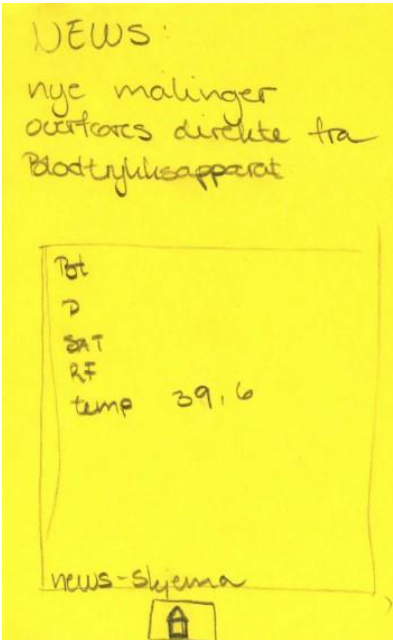 NEWS:
nye målinger
overføres direkte fra
Blodtrykksapparat
Bt
P
SAT
RF
temp 39,6
news-skjema